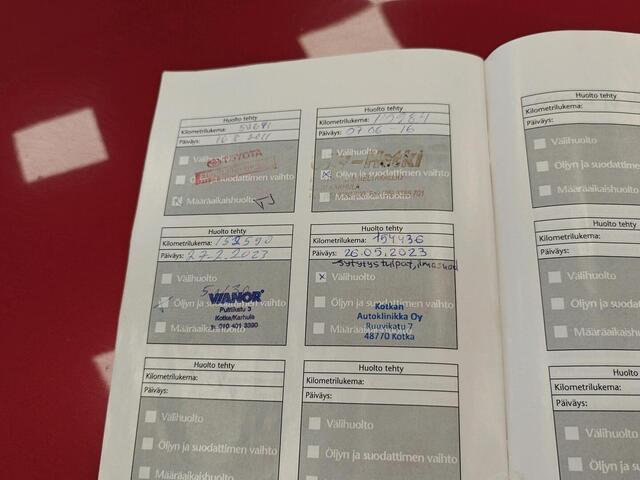 Huolto tehty
Kilometrilukema:
Päiväys:
Välihuolto
Öljyn ja suodattimen vaihto
Määräaikaishuolto
TOYOTA
Huolto tehty
Kilometrilukema:
Päiväys: 07.06-16
Välihuolto
Öljyn ja suodattimen vaihto
Määräaikaishuolto
Huolto tehty
Kilometrilukema:
Päiväys: 27.2.2023
Välihuolto
Öljyn ja suodattimen vaihto
Määräaikaishuolto
VIANOR
Kotka/Karhula
Huolto tehty
Kilometrilukema: 154436
Päiväys: 26.05.2023
Välihuolto
Öljyn ja suodattimen vaihto
Määräaikaishuolto
Kotkan
Autoklinikka Oy
Ruuvikatu 7
48770 Kotka
Huolto tehty
Kilometrilukema:
Päiväys:
Välihuolto
Öljyn ja suodattimen vaihto
Määräaikaishuolto
Huolto tehty
Kilometrilukema:
Päiväys:
Välihuolto
Öljyn ja suodattimen vaihto
Määräaikaishuolto
Huolto tehty
Kilometrilukema:
Päiväys:
Välihuolto
Öljyn ja suodattimen
Määräaikaishuolto
Huolto
Kilometrilukema:
Päiväys:
Välihuolto
Öljyn ja suodattimen
Määräaikaishuolto
Kilometrilukema:
Päiväys:
Välihuolto
Öljyn ja